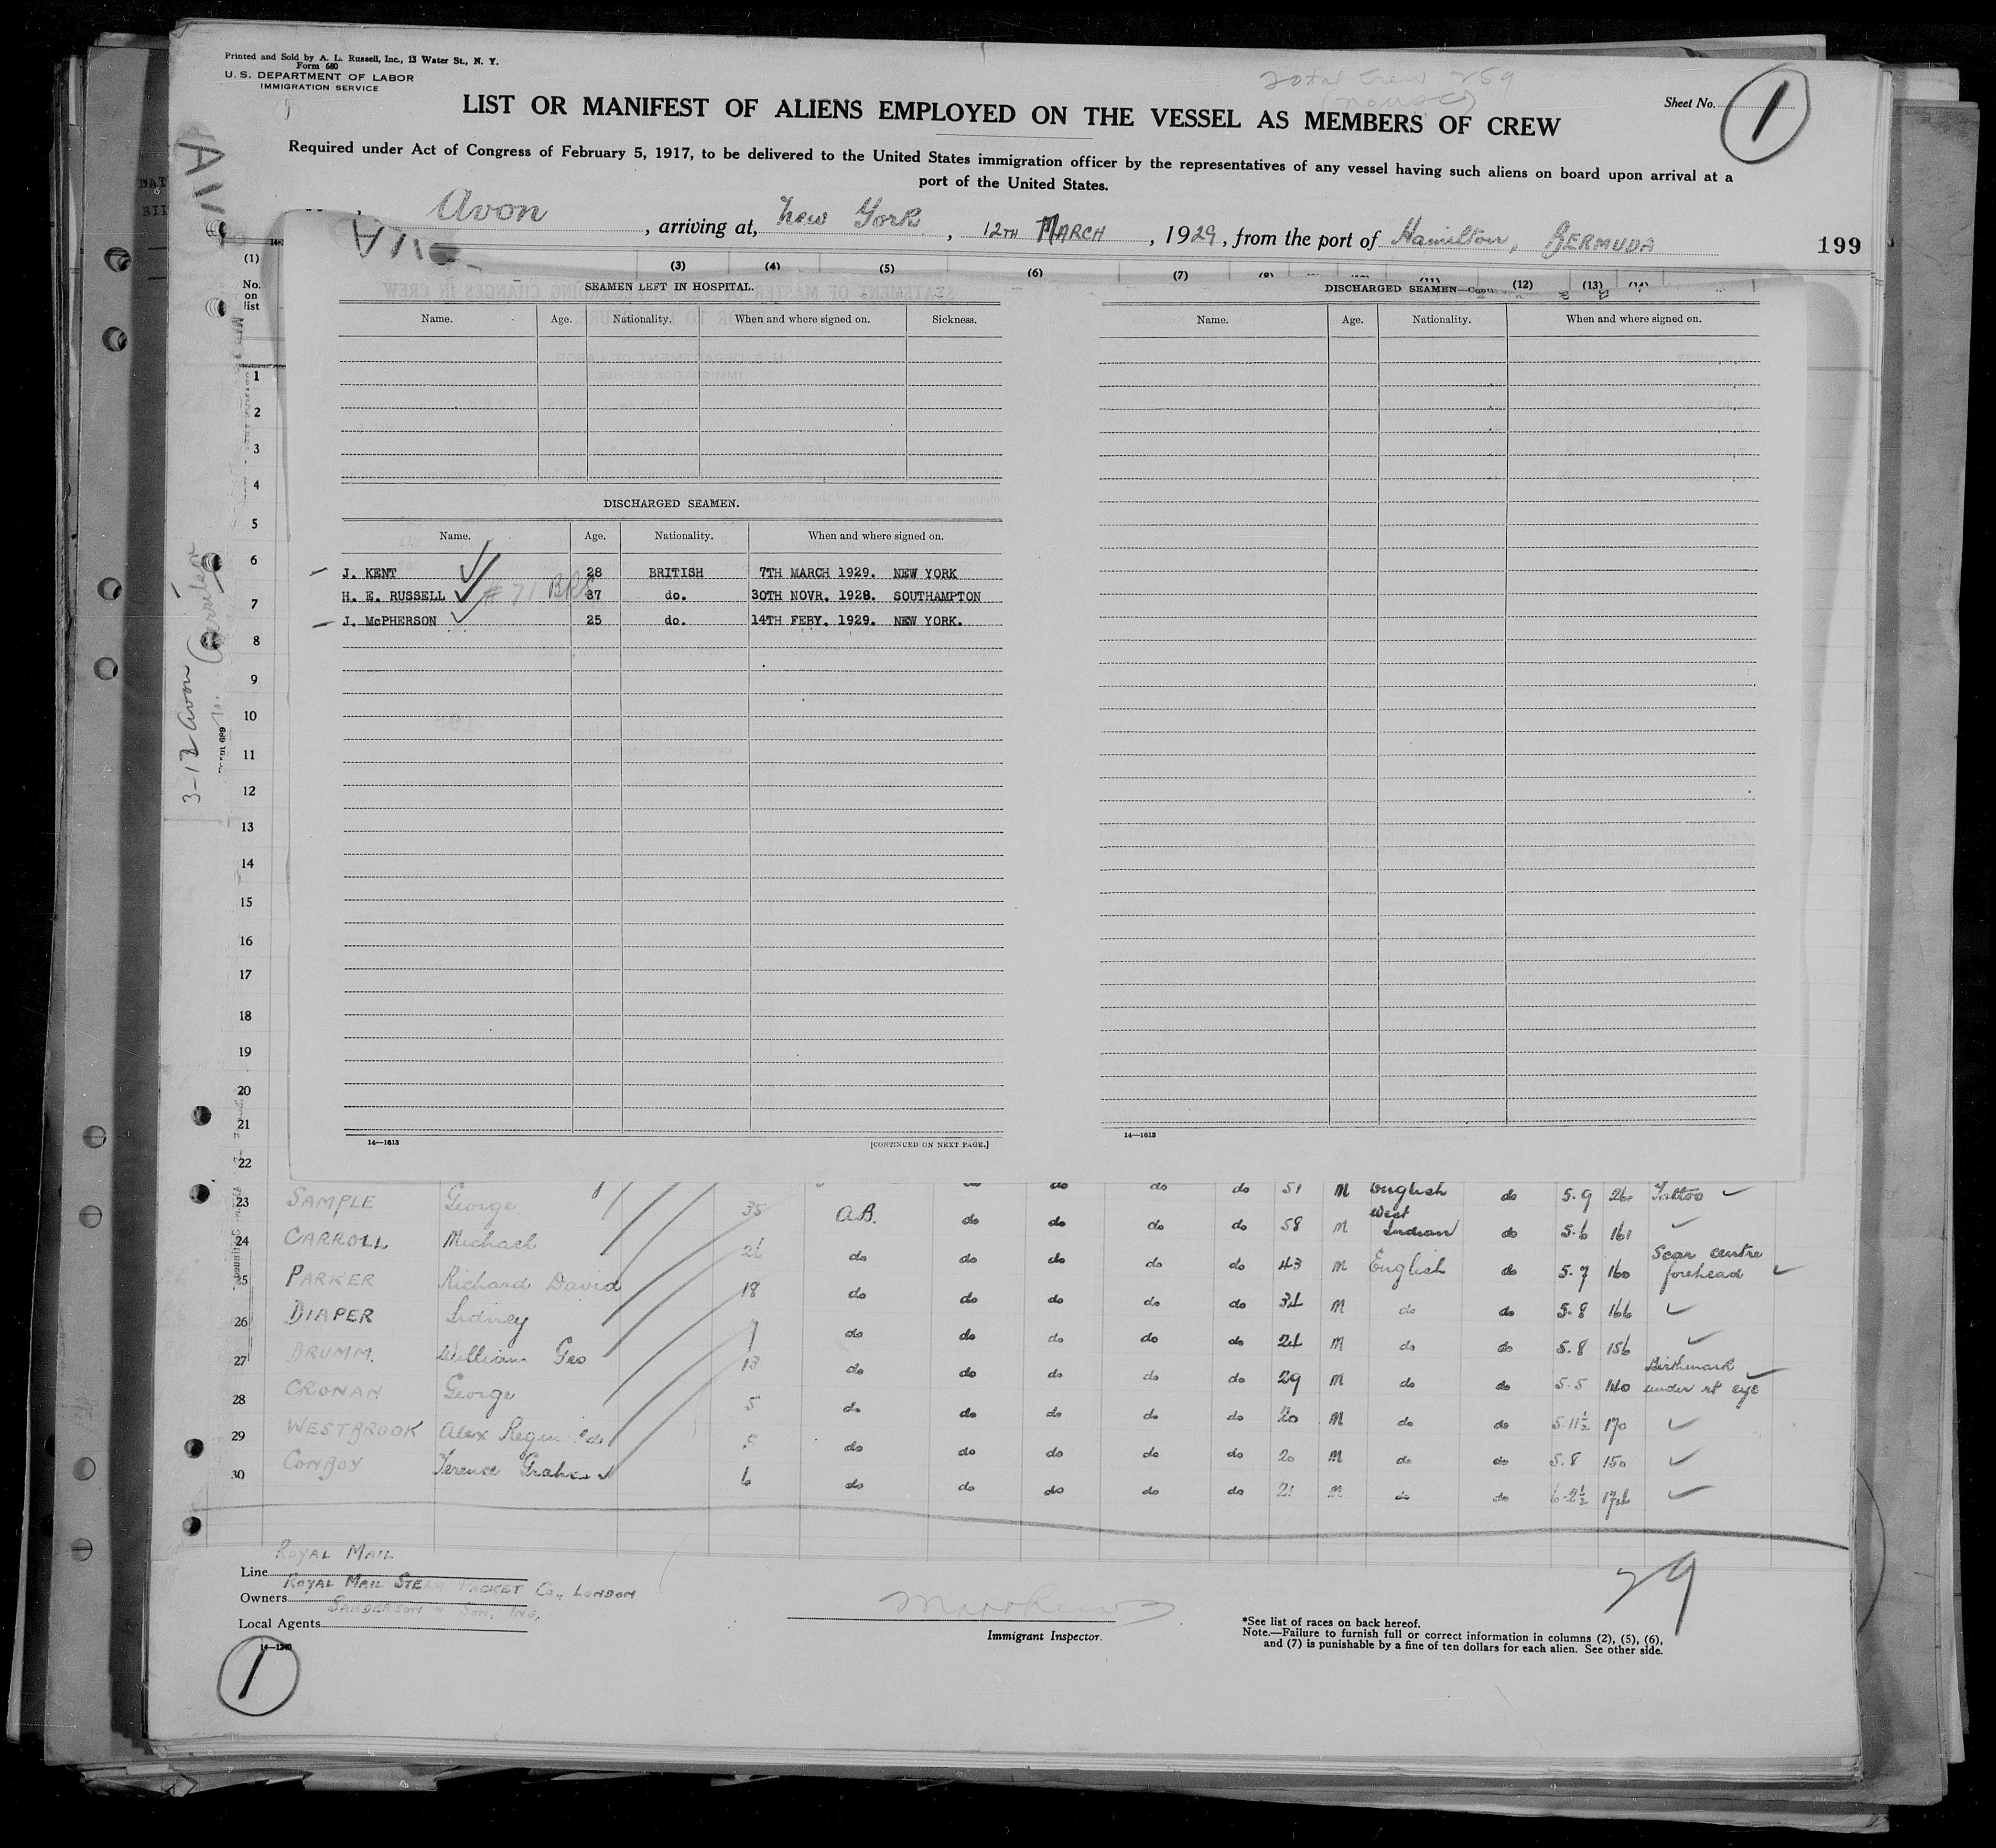 Printed and Sold by A. L. Russell, Inc., 13 Water St., N. Y.
Form 680
U. S. DEPARTMENT OF LABOR
IMMIGRATION SERVICE
Total Crew 259
Sheet No. 1
LIST OR MANIFEST OF ALIENS EMPLOYED ON THE VESSEL AS MEMBERS OF CREW
Required under Act of Congress of February 5, 1917, to be delivered to the United States immigration officer by the representatives of any vessel having such aliens on board upon arrival at a
port of the United States.
Avon, arriving at, New York, 12TH MARCH, 1929, from the port of Hamilton, BERMUDA
199
(1) (3) (4) (5) (6) (7) (8) (11) (12) (13) (14)
No. on list
SEAMEN LEFT IN HOSPITAL.
Name. Age. Nationality. When and where signed on. Sickness.
DISCHARGED SEAMEN—Cont
Name. Age. Nationality. When and where signed on.
1
2
3
4
5
6
7
8
9
10
11
12
13
14
15
16
17
18
19
20
21
22
DISCHARGED SEAMEN.
Name. Age. Nationality. When and where signed on.
J. KENT 28 BRITISH 7TH MARCH 1929. NEW YORK
H. E. RUSSELL # 71 BRS 37 do. 30TH NOVR. 1928. SOUTHAMPTON
J. McPHERSON 25 do. 14TH FEBY. 1929. NEW YORK.
3-12 Avon
Form 689
14—1613
[CONTINUED ON NEXT PAGE.]
14—1613
23 SAMPLE George 35 do do do do 51 M English do 5.9 Tattoo
24 CARROLL Michael 26 A.B. do do do do 58 M West Indian do 5.6 161
25 PARKER Richard David 18 do do do do do 43 M English do 5.7 160 Scar centre forehead
26 DIAPER Sidney 9 do do do do do 34 M do do 5.8 166
27 DRUMM. William Geo 13 do do do do do 24 M do do 5.8 156
28 CRONAN George 5 do do do do do 29 M do do 5.5 140 Birthmark under rt eye
29 WESTBROOK Alex 5 do do do do do 20 M do do 5.11½ 170
30 CONBOY Terence Graham 6 do do do do do 20 M do do 5.8 150
do do do do do 21 M do do 6-2½
Line ROYAL MAIL
Owners ROYAL MAIL STEAM PACKET Co., LONDON
Local Agents SANDERSON & SON, INC.
14—1240
Matthews
Immigrant Inspector.
29
*See list of races on back hereof.
Note.—Failure to furnish full or correct information in columns (2), (5), (6),
and (7) is punishable by a fine of ten dollars for each alien. See other side.
1